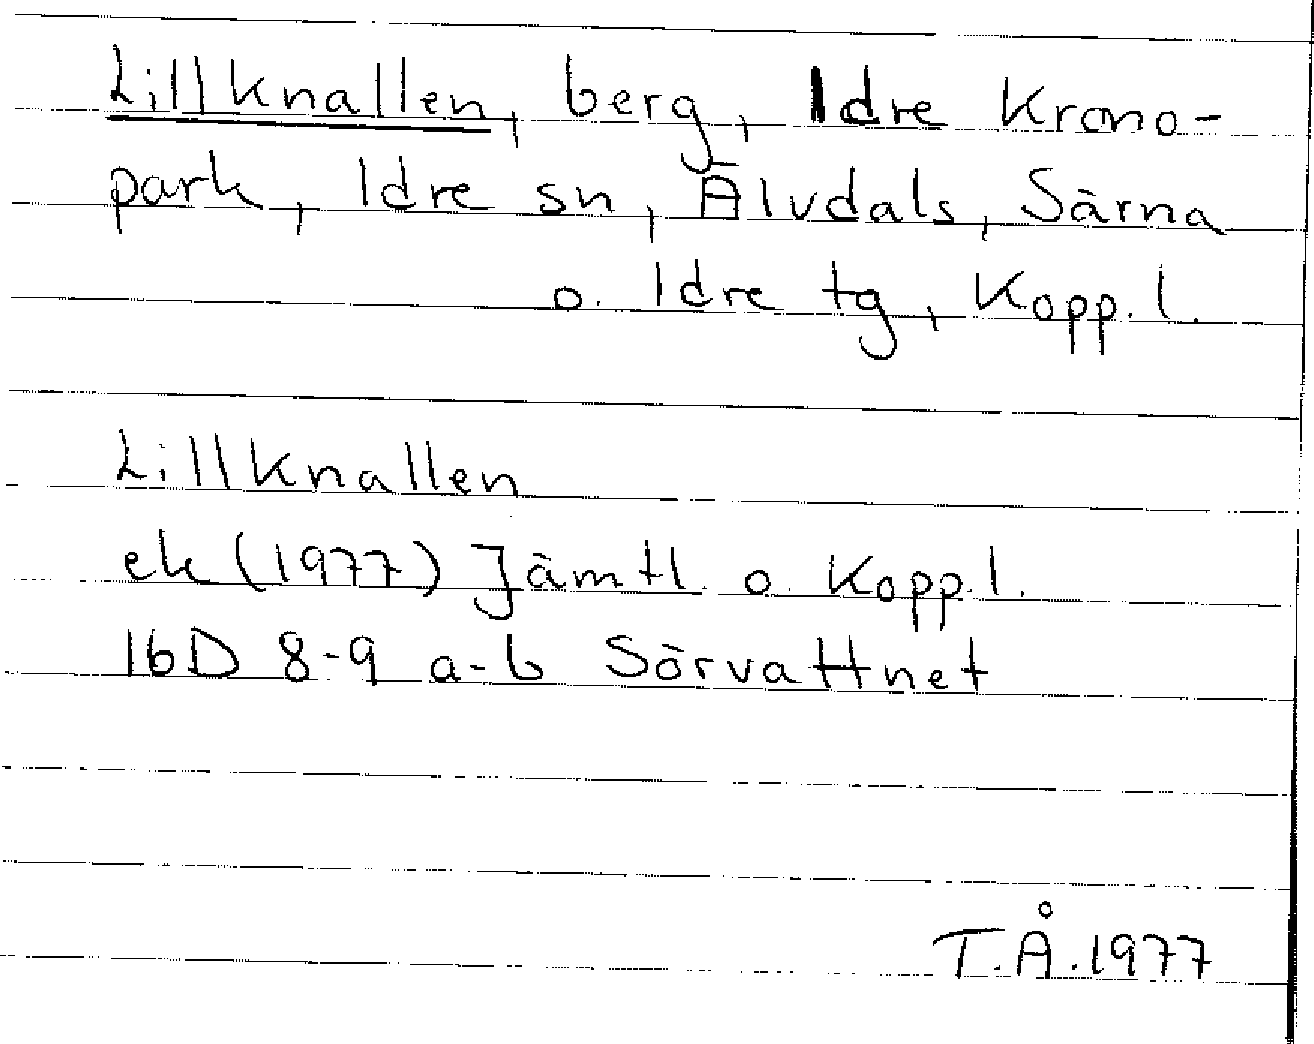 Lillknallen, berg, Idre Krono-
park, Idre sn, Älvdals, Särna
o. Idre tg, Kopp. l.
Lillknallen
ek (1977) Jämtl. o. Kopp. l.
16D 8-9 a-b Sörvattnet
T.Å. 1977